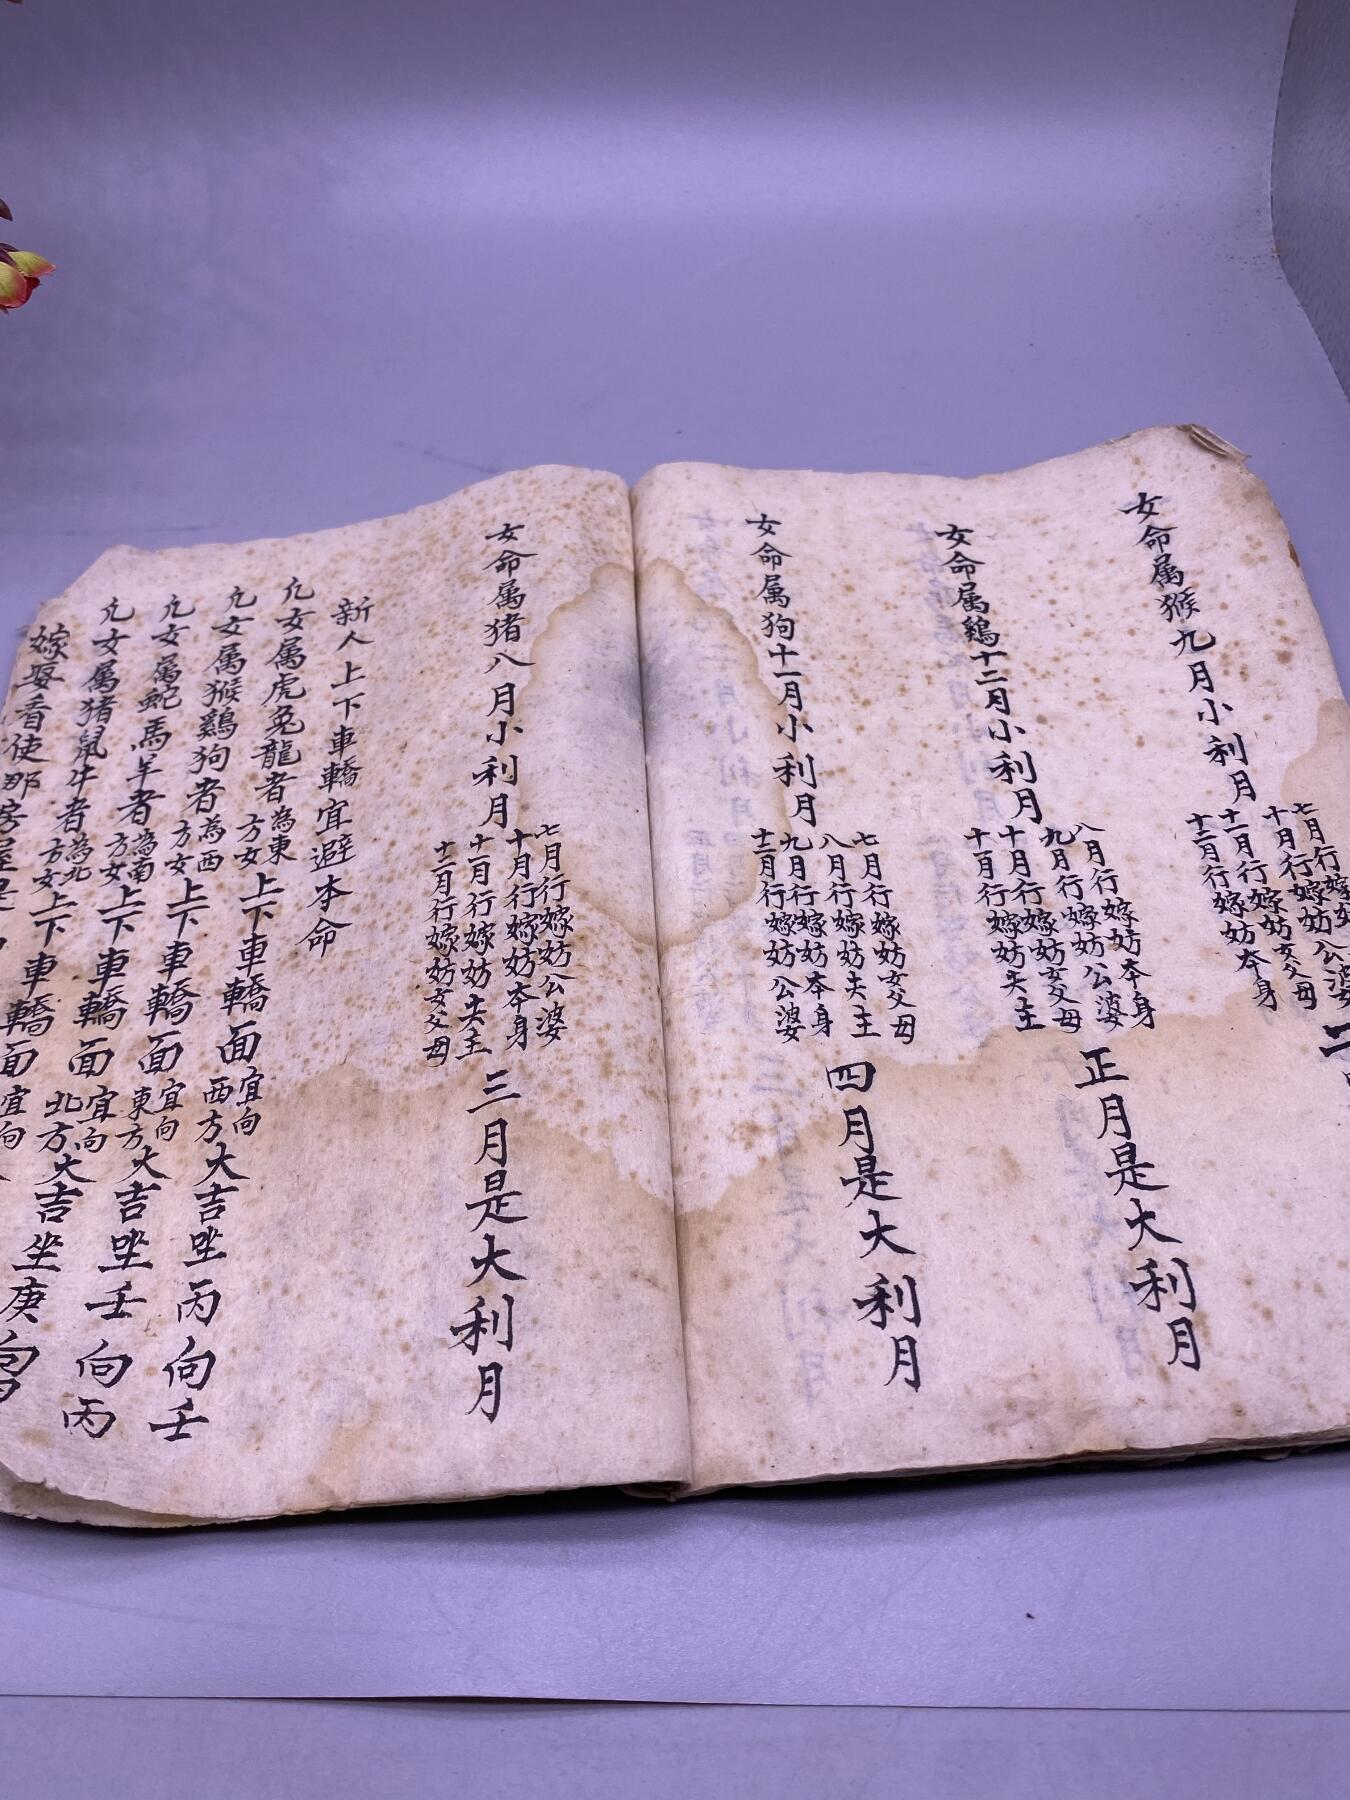 女命属猴九月小利月
七月行嫁妨公婆
十月行嫁妨女父母
十一月行嫁妨
十二月行嫁妨本身
女命属鷄十二月小利月
八月行嫁妨本身
九月行嫁妨公婆
十月行嫁妨女父母
十一月行嫁妨夫主
正月是大利月
女命属狗十一月小利月
七月行嫁妨女父母
八月行嫁妨夫主
九月行嫁妨本身
十二月行嫁妨公婆
四月是大利月
女命属猪八月小利月
七月行嫁妨公婆
十月行嫁妨本身
十一月行嫁妨夫主
十二月行嫁妨女父母
三月是大利月
新人上下車轎宜避本命
凢女属虎兔龍者為東方女上下車轎面宜向西方大吉坐丙向壬
凢女属猴鷄狗者為西方女上下車轎面宜向東方大吉坐壬向丙
凢女属蛇馬羊者為南方女上下車轎面宜向北方大吉坐庚向
凢女属猪鼠牛者為北方女上下車轎面宜向
嫁娶看使那房屋是